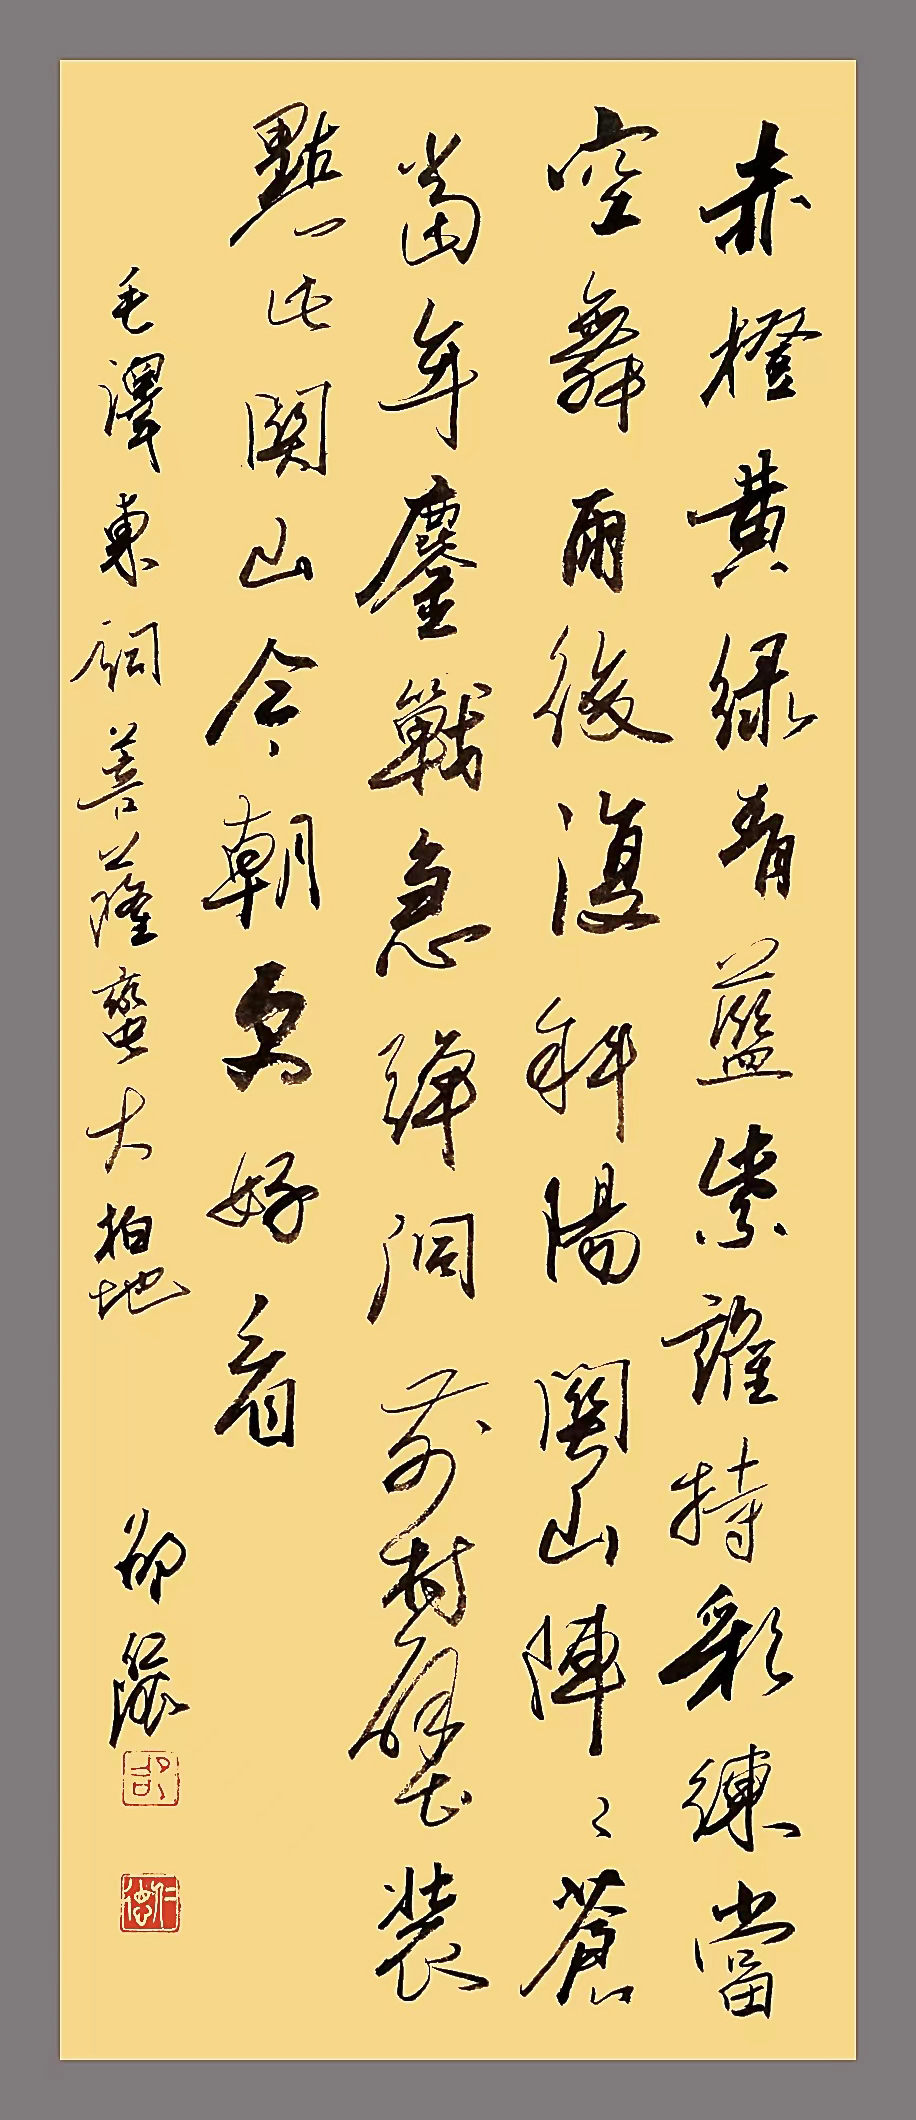 赤橙黄绿青藍紫誰持彩練當
空舞雨後復斜陽関山陣〻蒼
當年鏖戰急彈洞前村壁裝
點此関山今朝更好看
毛澤東詞菩薩蠻大柏地
邵
邵
仁德